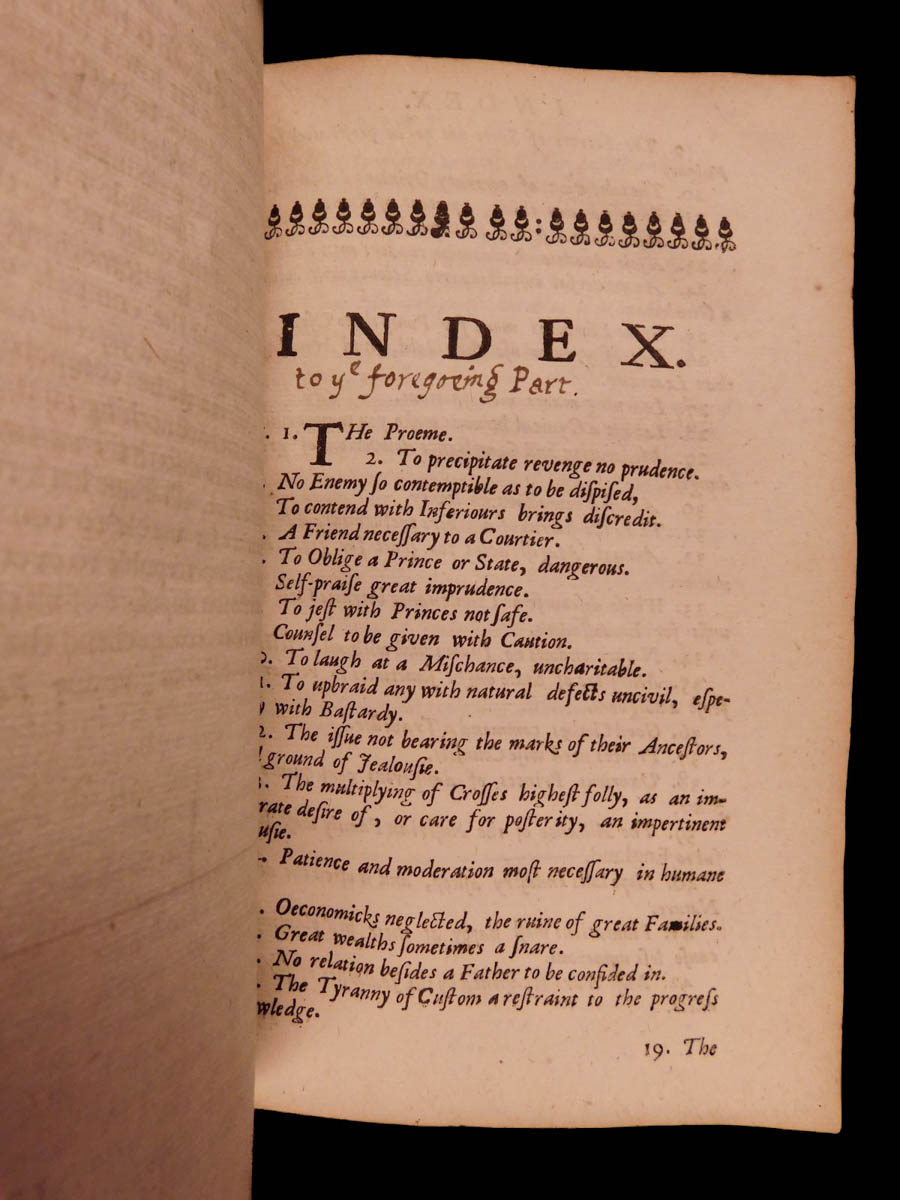 INDEX.
to yᵉ foregoeing Part.
1. THe Proeme.
2. To precipitate revenge no prudence.
No Enemy ſo contemptible as to be diſpiſed,
To contend with Inferiours brings diſcredit.
A Friend neceſſary to a Courtier.
To Oblige a Prince or State, dangerous.
Self-praiſe great imprudence.
To jeſt with Princes not ſafe.
Counſel to be given with Caution.
To laugh at a Miſchance, uncharitable.
To upbraid any with natural defects uncivil, eſpe-
with Baſtardy.
2. The iſſue not bearing the marks of their Anceſtors,
ground of Jealouſie.
The multiplying of Croſſes higheſt folly, as an im-
rate deſire of, or care for poſterity, an impertinent
uſie.
Patience and moderation moſt neceſſary in humane
Oeconomicks neglected, the ruine of great Families.
Great wealths ſometimes a ſnare.
No relation beſides a Father to be confided in.
The Tyranny of Cuſtom a reſtraint to the progreſs
wledge.
19. The